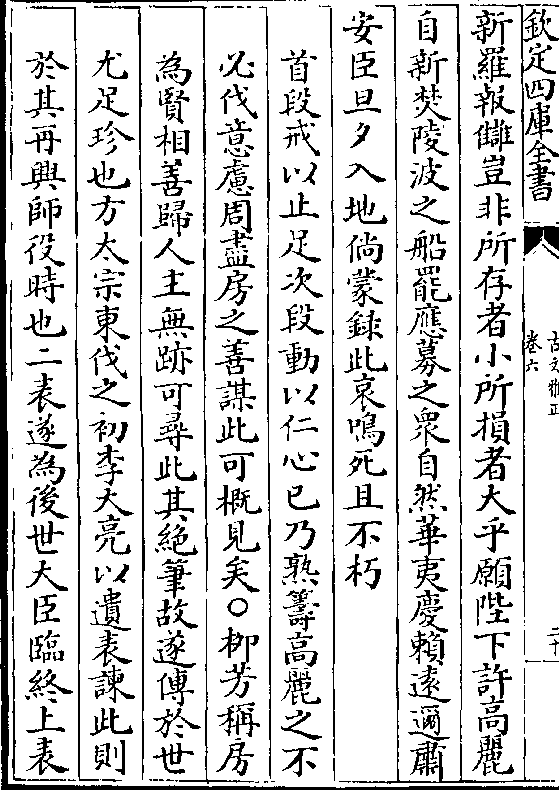 欽定四庫全書
古文雅正
卷六
二十
新羅報讎豈非所存者小所損者大乎願陛下許高麗
自新焚陵波之船罷應募之衆自然華夷慶賴遠邇肅
安臣旦夕入地倘蒙録此哀鳴死且不朽
首段戒以止足次段動以仁心已乃熟籌高麗之不
必伐意慮周盡房之善謀此可概見矣○柳芳稱房
為賢相善歸人主無跡可尋此其絶筆故遂傳於世
尤足珍也方太宗東伐之初李大亮以遺表諫此則
於其再興師役時也二表遂為後世大臣臨終上表